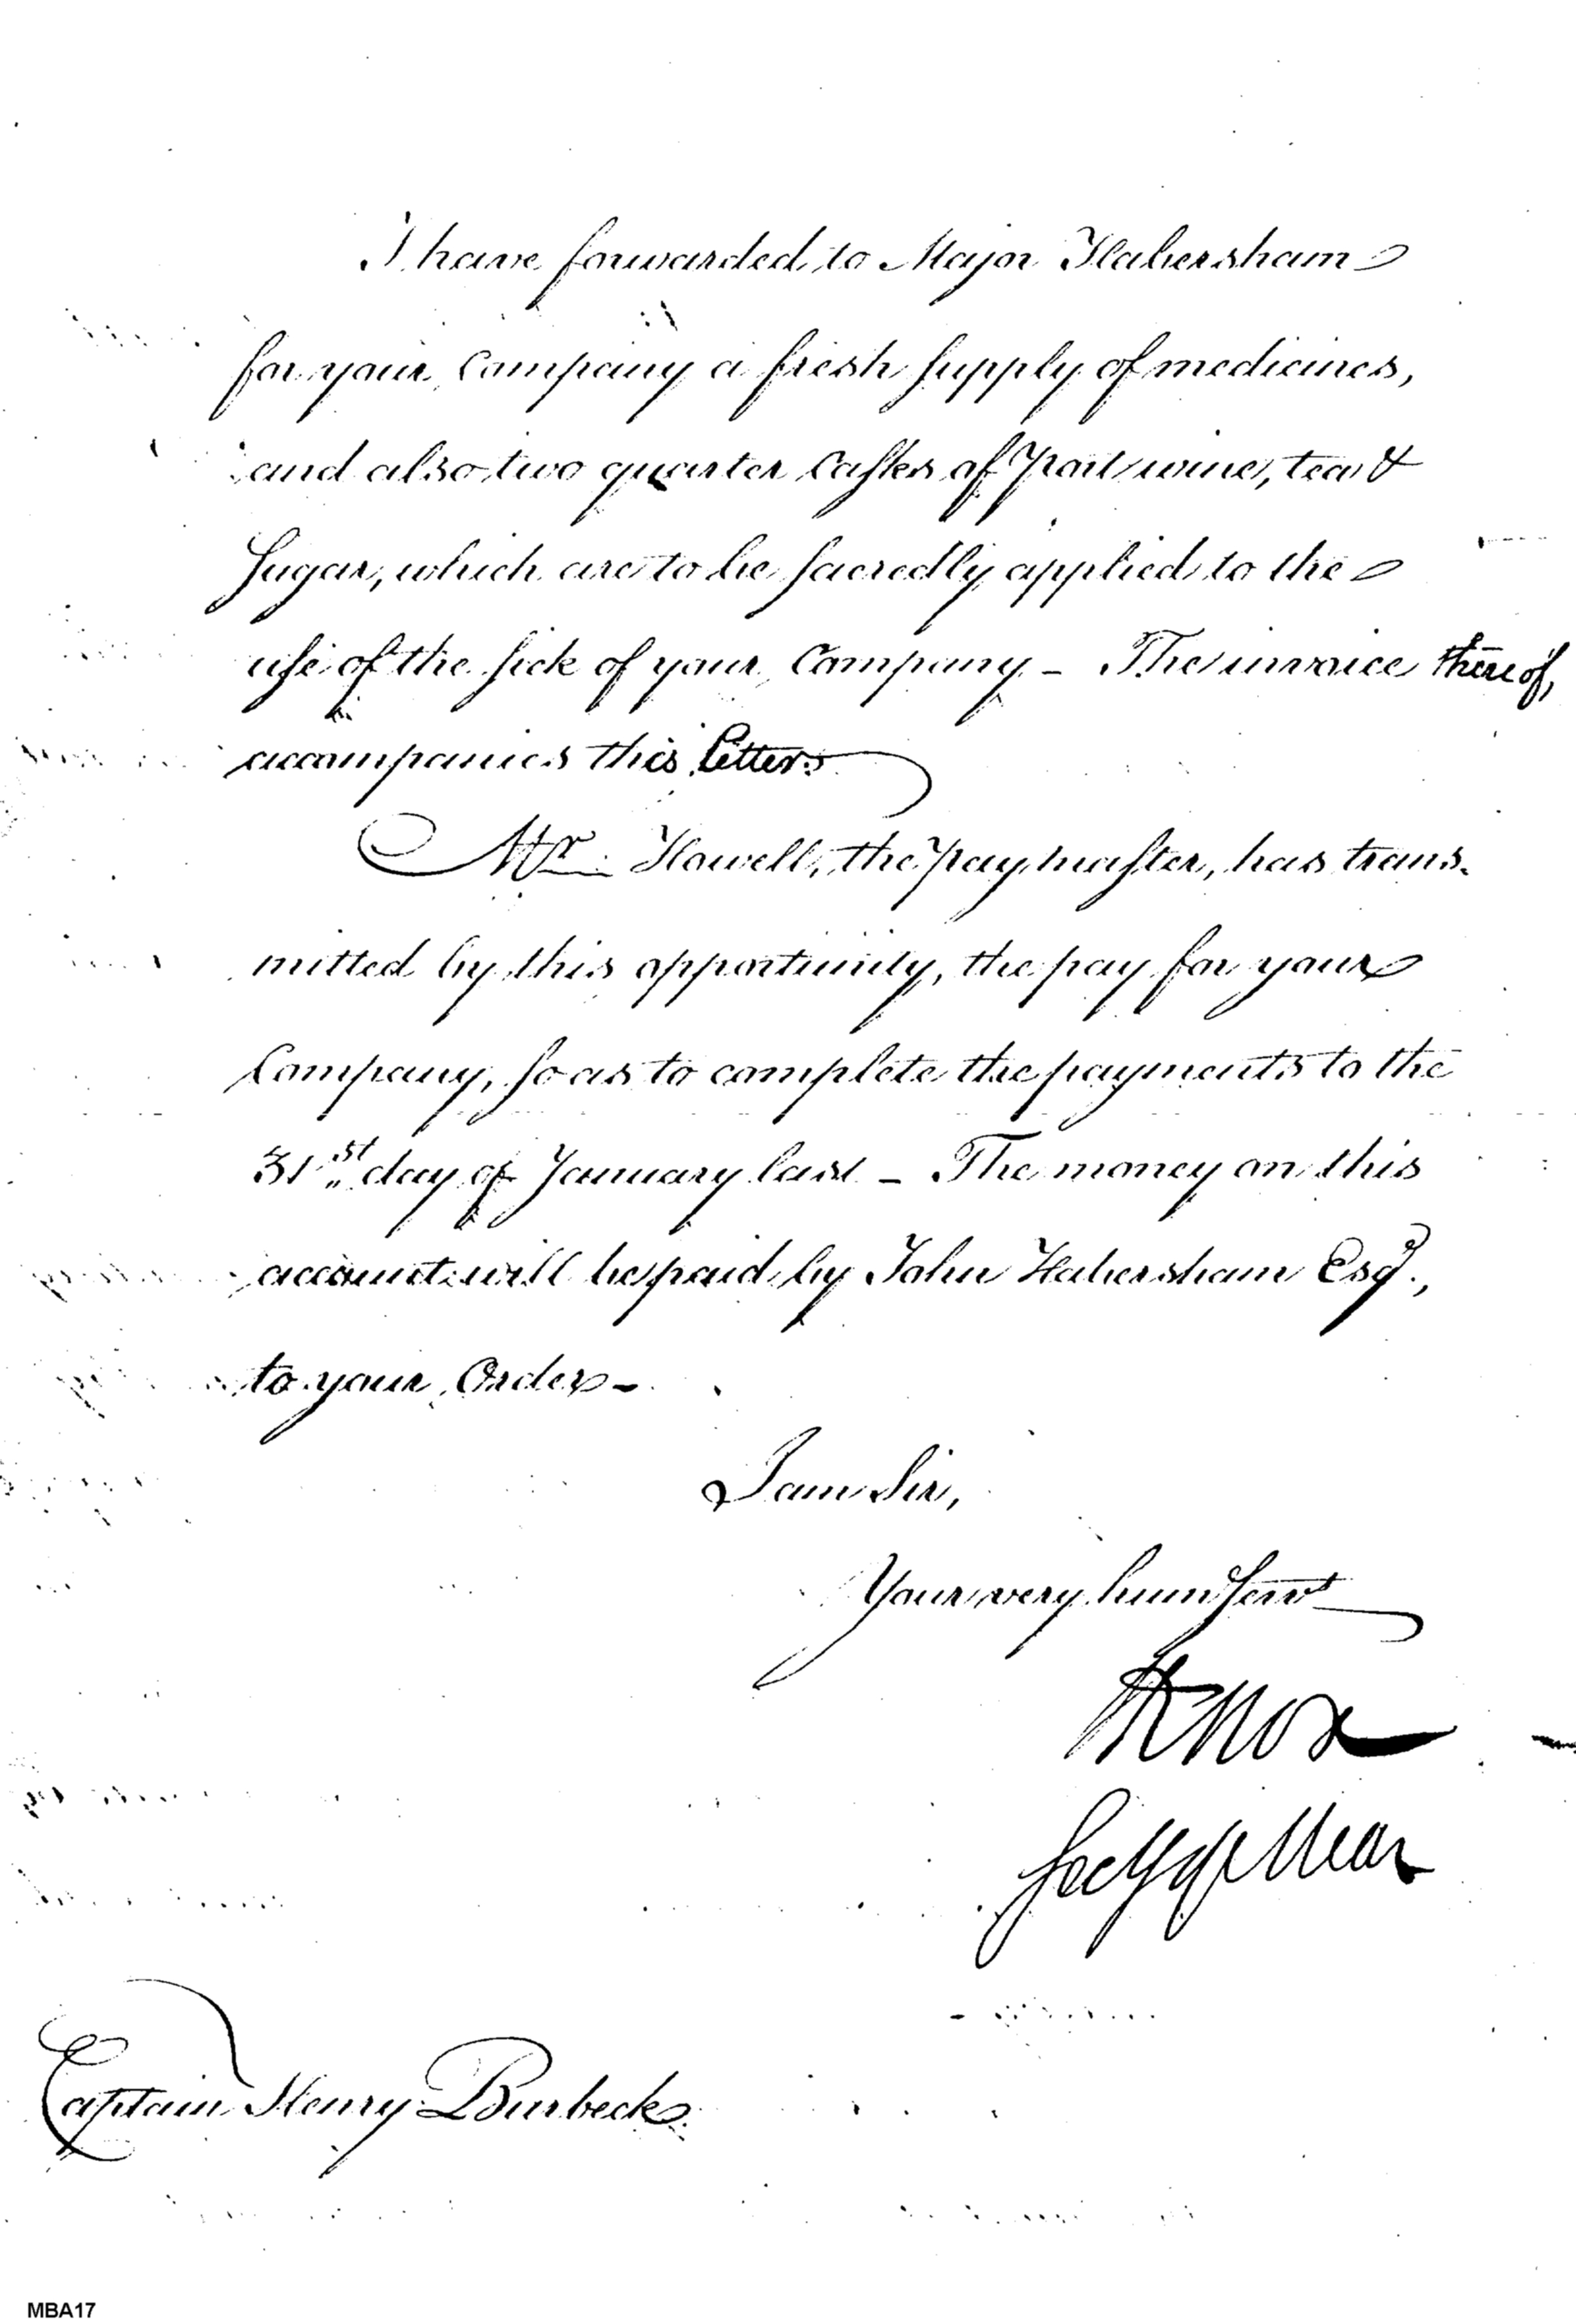 I have forwarded to Major Habersham
for your Company a fresh supply of medicines,
and also two quarter casks of Port wine, tea &
Sugar, which are to be sacredly applied to the
use of the sick of your Company - The invoice thereof,
accompanies this letter.
Mr. Howell, the Paymaster, has trans-
mitted by this opportunity, the pay for your
Company, so as to complete the payments to the
31st day of January last - The money on this
account will be paid by John Habersham Esqr.,
to your Order -
I am Sir,
Your very hum Servt
HKnox
Secy of War
Captain Henry Burbeck
MBA17